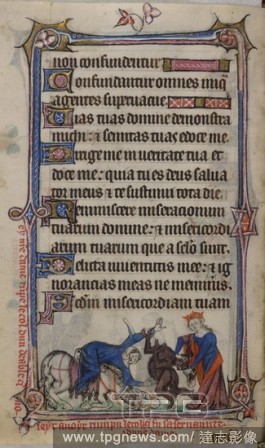 non confundentur
Confundantur omnes iniq
agentes supervacue
Vias tuas domine demonstra
michi: & semitas tuas edoce me
Dirige me in veritate tua et
doce me: quia tu es deus salua
tor meus & te sustinui tota die
Reminiscere miserationum
tuarum domine: & misericordi
arum tuarum que a seculo sunt
Delicta iuuentutis mee: & ig
norantias meas ne memineris
Scdm misericordiam tuam
TPG
www.tpgnews.com/ 達志影像